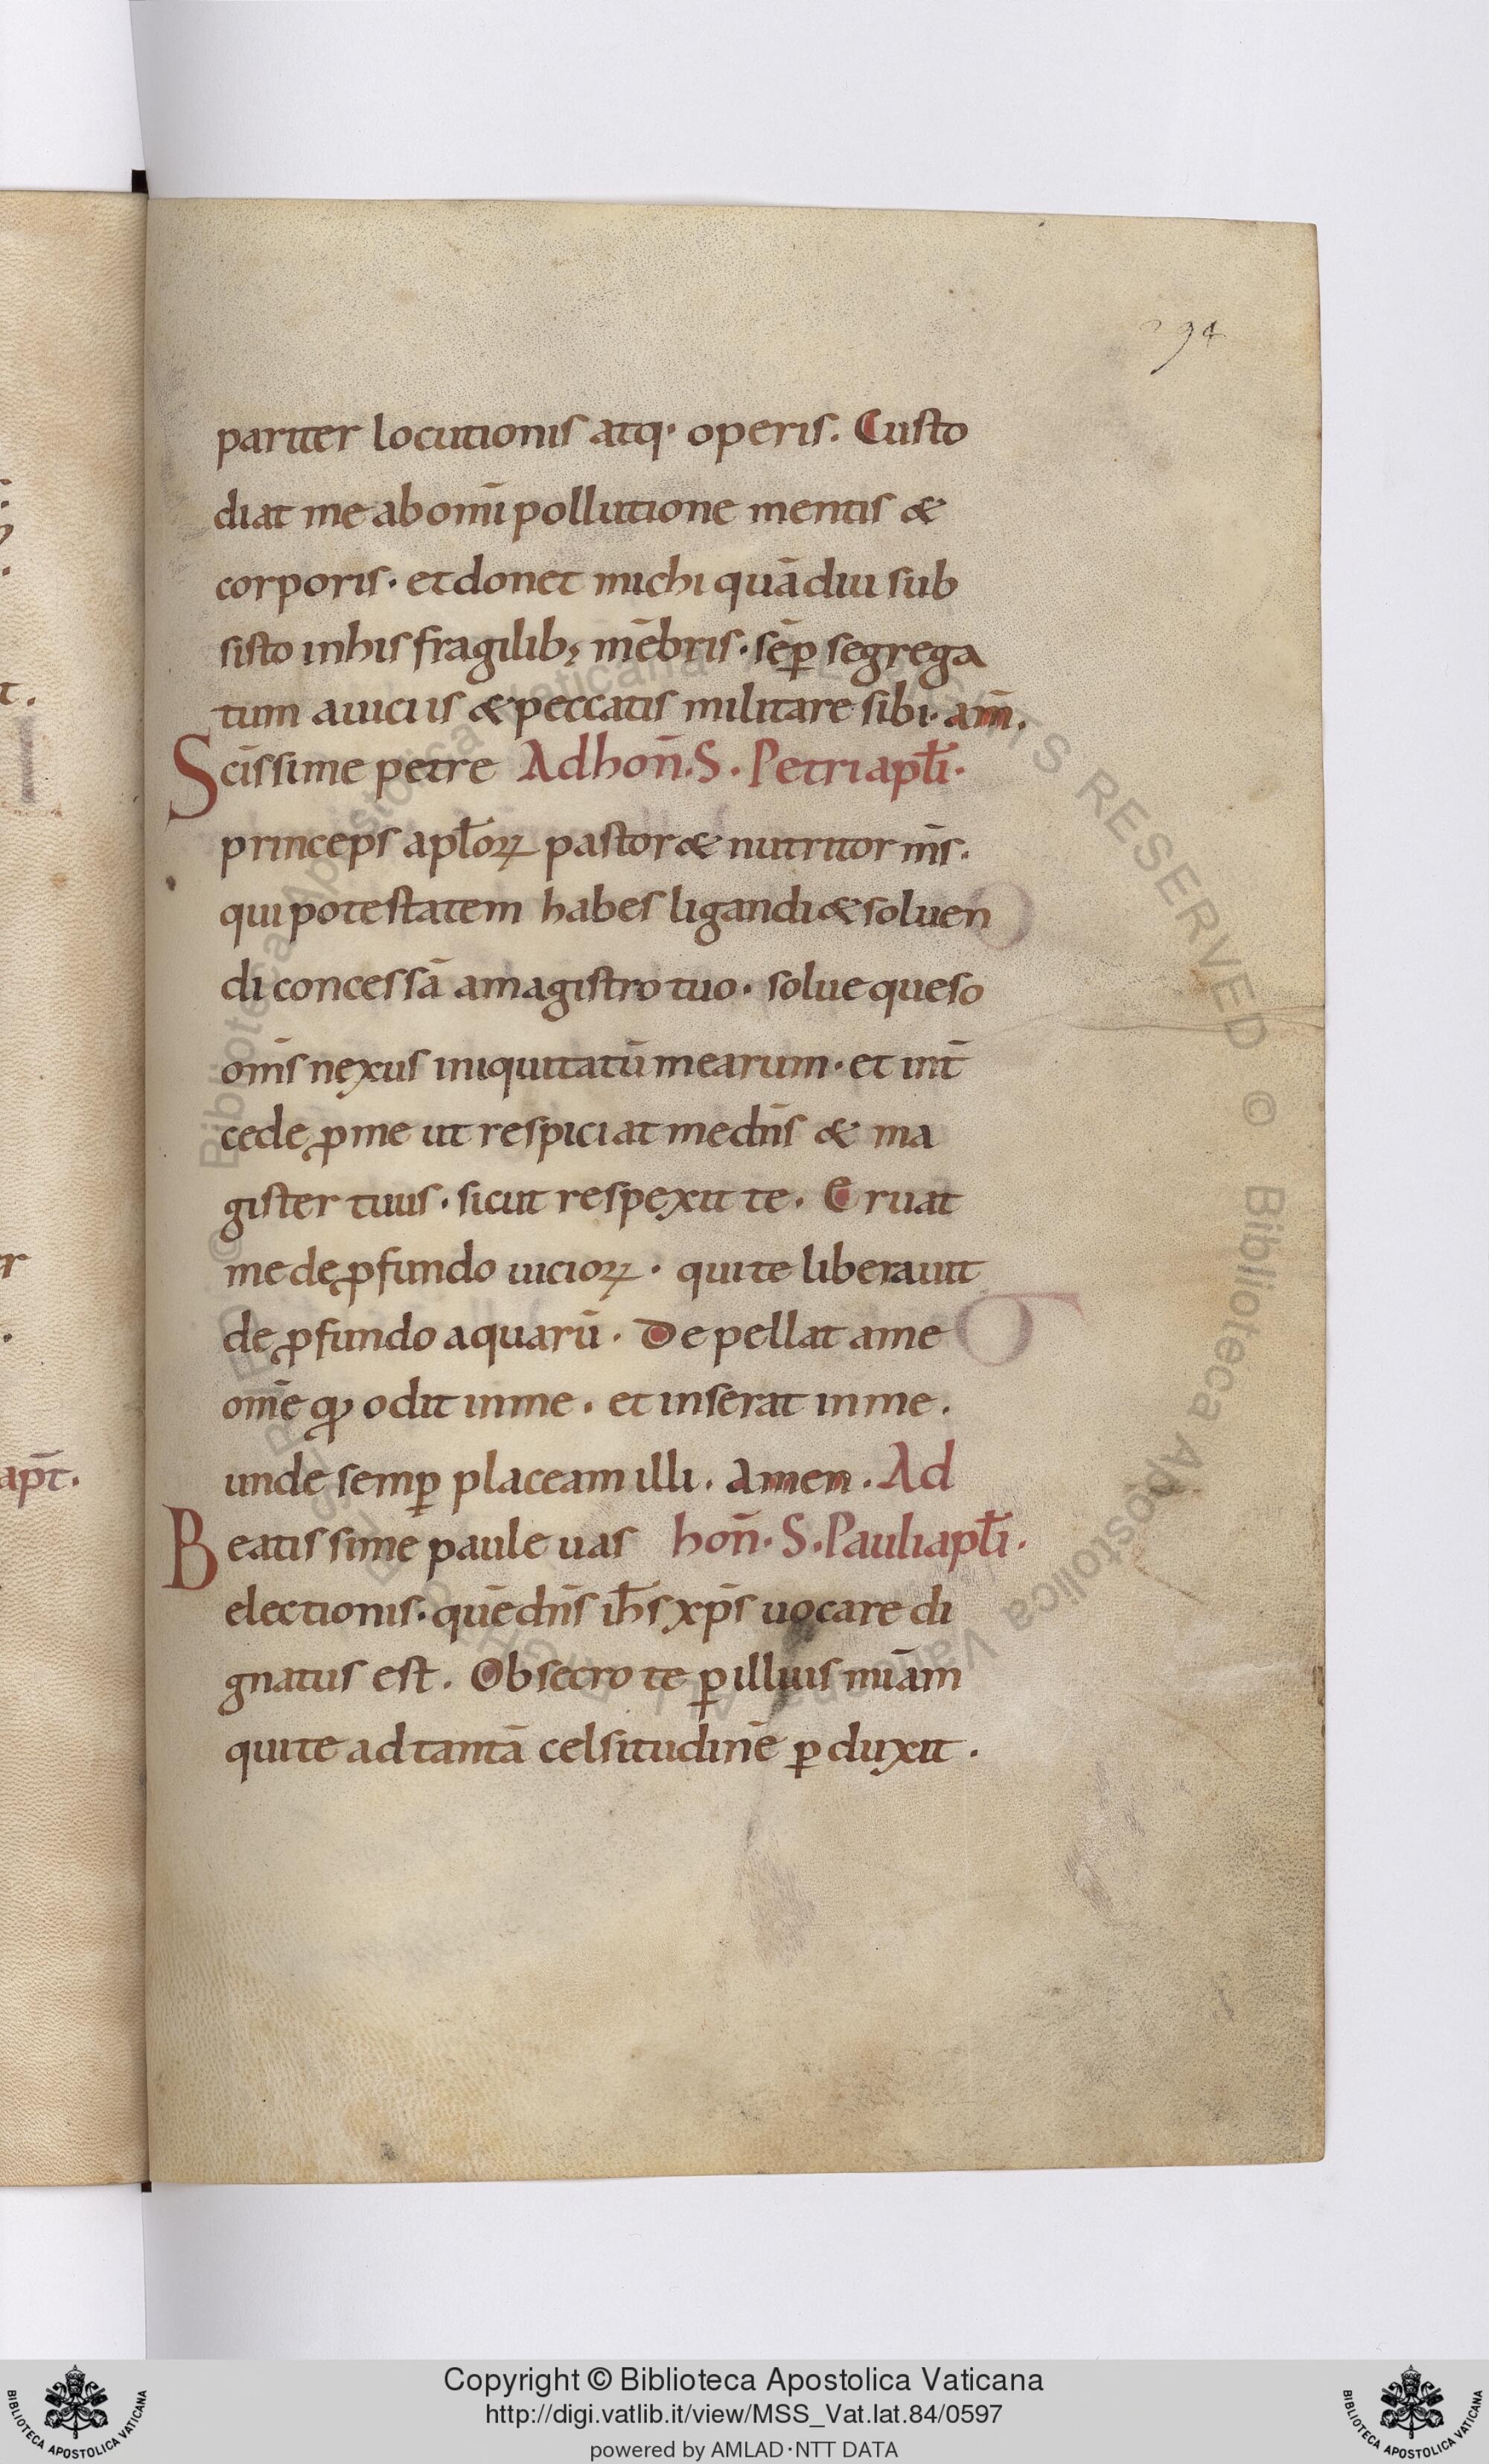 294
pariter locutionis atq· operis. Custo
diat me ab om̄i pollutione mentis &
corporis· et donet michi quādiu sub
sisto in his fragilib; mēbris· sēꝑ segrega
tum a uiciis & peccatis militare sibi· am̄.
Sc̄issime petre Ad hon̄. S. Petri apl̄i·
princeps apl̄oꝝ pastor & nutritor nr̄s.
qui potestatem habes ligandi & soluen
di concessā a magistro tuo· solue queso
om̄s nexus iniquitatū mearum· et int̄
cede ꝓ me ut respiciat me dn̄s & ma
gister tuus· sicut respexit te. Eruat
me de ꝓfundo uicioꝝ· qui te liberauit
de ꝓfundo aquarū. Depellat a me
om̄e qđ odit in me. et inserat in me.
unde semꝑ placeam illi. amen. Ad
Beatissime paule uas hon̄. S. Pauli apl̄i.
electionis· quē dn̄s ih̄s xp̄s uocare di
gnatus est. Obsecro te ꝑ illius mīam
qui te ad tantā celsitudinē ꝑduxit.
apt̄.
Copyright © Biblioteca Apostolica Vaticana
http://digi.vatlib.it/view/MSS_Vat.lat.84/0597
powered by AMLAD·NTT DATA
BIBLIOTECA APOSTOLICA VATICANA
BIBLIOTECA APOSTOLICA VATICANA